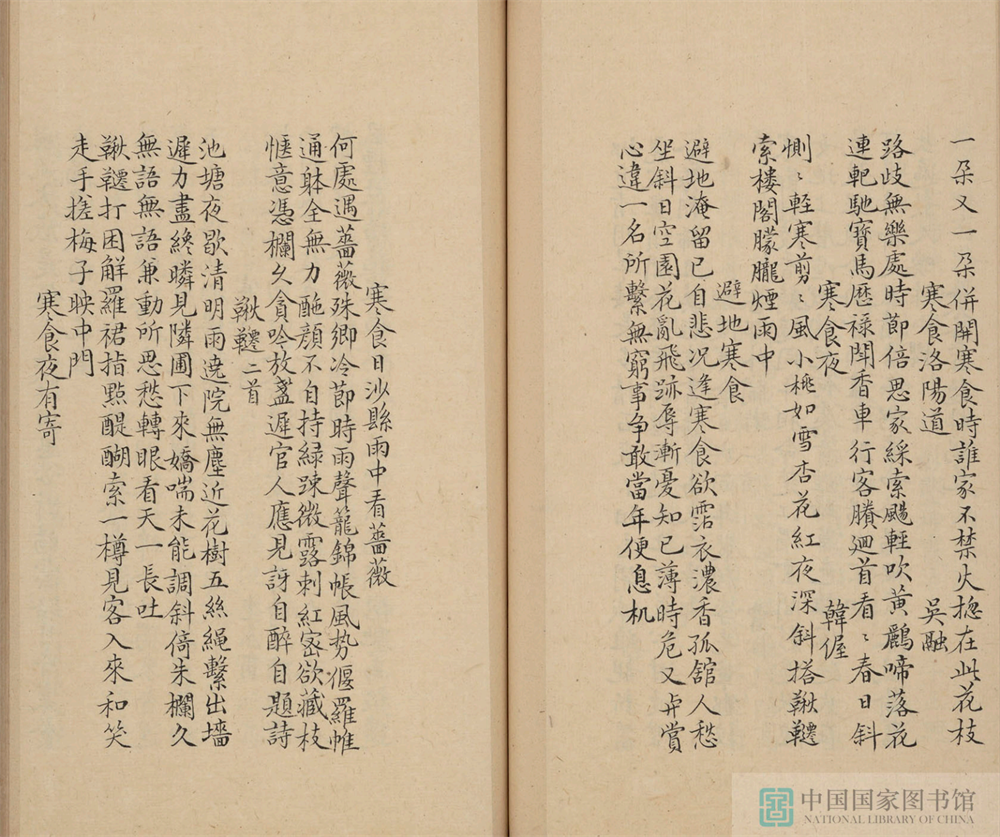 一朶又一朶併開寒食時誰家不禁火揔在此花枝
寒食洛陽道 吳融
路歧無樂處時節倍思家綵索颺輕吹黃鸝啼落花
連軶馳寶馬歷祿鬥香車行客賸廻首看〻春日斜
寒食夜 韓偓
惻〻輊寒剪〻風小桃如雪杏花紅夜深斜搭鞦韆
索楼閣朦朧煙雨中
避地寒食
避地淹留已自悲况逢寒食欲霑衣濃香孤舘人愁
坐斜日空園花亂飛跡辱漸憂知已薄時危又与賞
心違一名所繫無窮事争敢當年便息机
寒食日沙縣雨中看薔薇
何處遇薔薇殊鄉冷節時雨聲籠錦帳風势偃羅帷
通躰全無力酡顔不自持緑踈微露刺紅密欲藏枝
愜意憑欄久貪吟放盞遲官人應見訝自醉自題詩
鞦韆二首
池塘夜歇清明雨遶院無塵近花樹五絲繩繫出墻
遲力盡終瞵見隣圃下來嬌喘未能調斜倚朱欄久
無語無語兼動所思愁轉眼看天一長吐
鞦韆打困解羅裙指點醍醐索一樽見客入來和笑
走手搓梅子映中門
寒食夜有寄
中国国家图书馆
NATIONAL LIBRARY OF CHINA